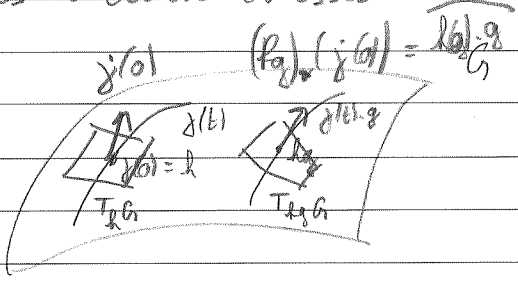 γ̇(0) (R_g)_* (γ̇(0)) =
G
γ(t) γ(t)·g
γ(0) = h hg
T_h G T_hg G